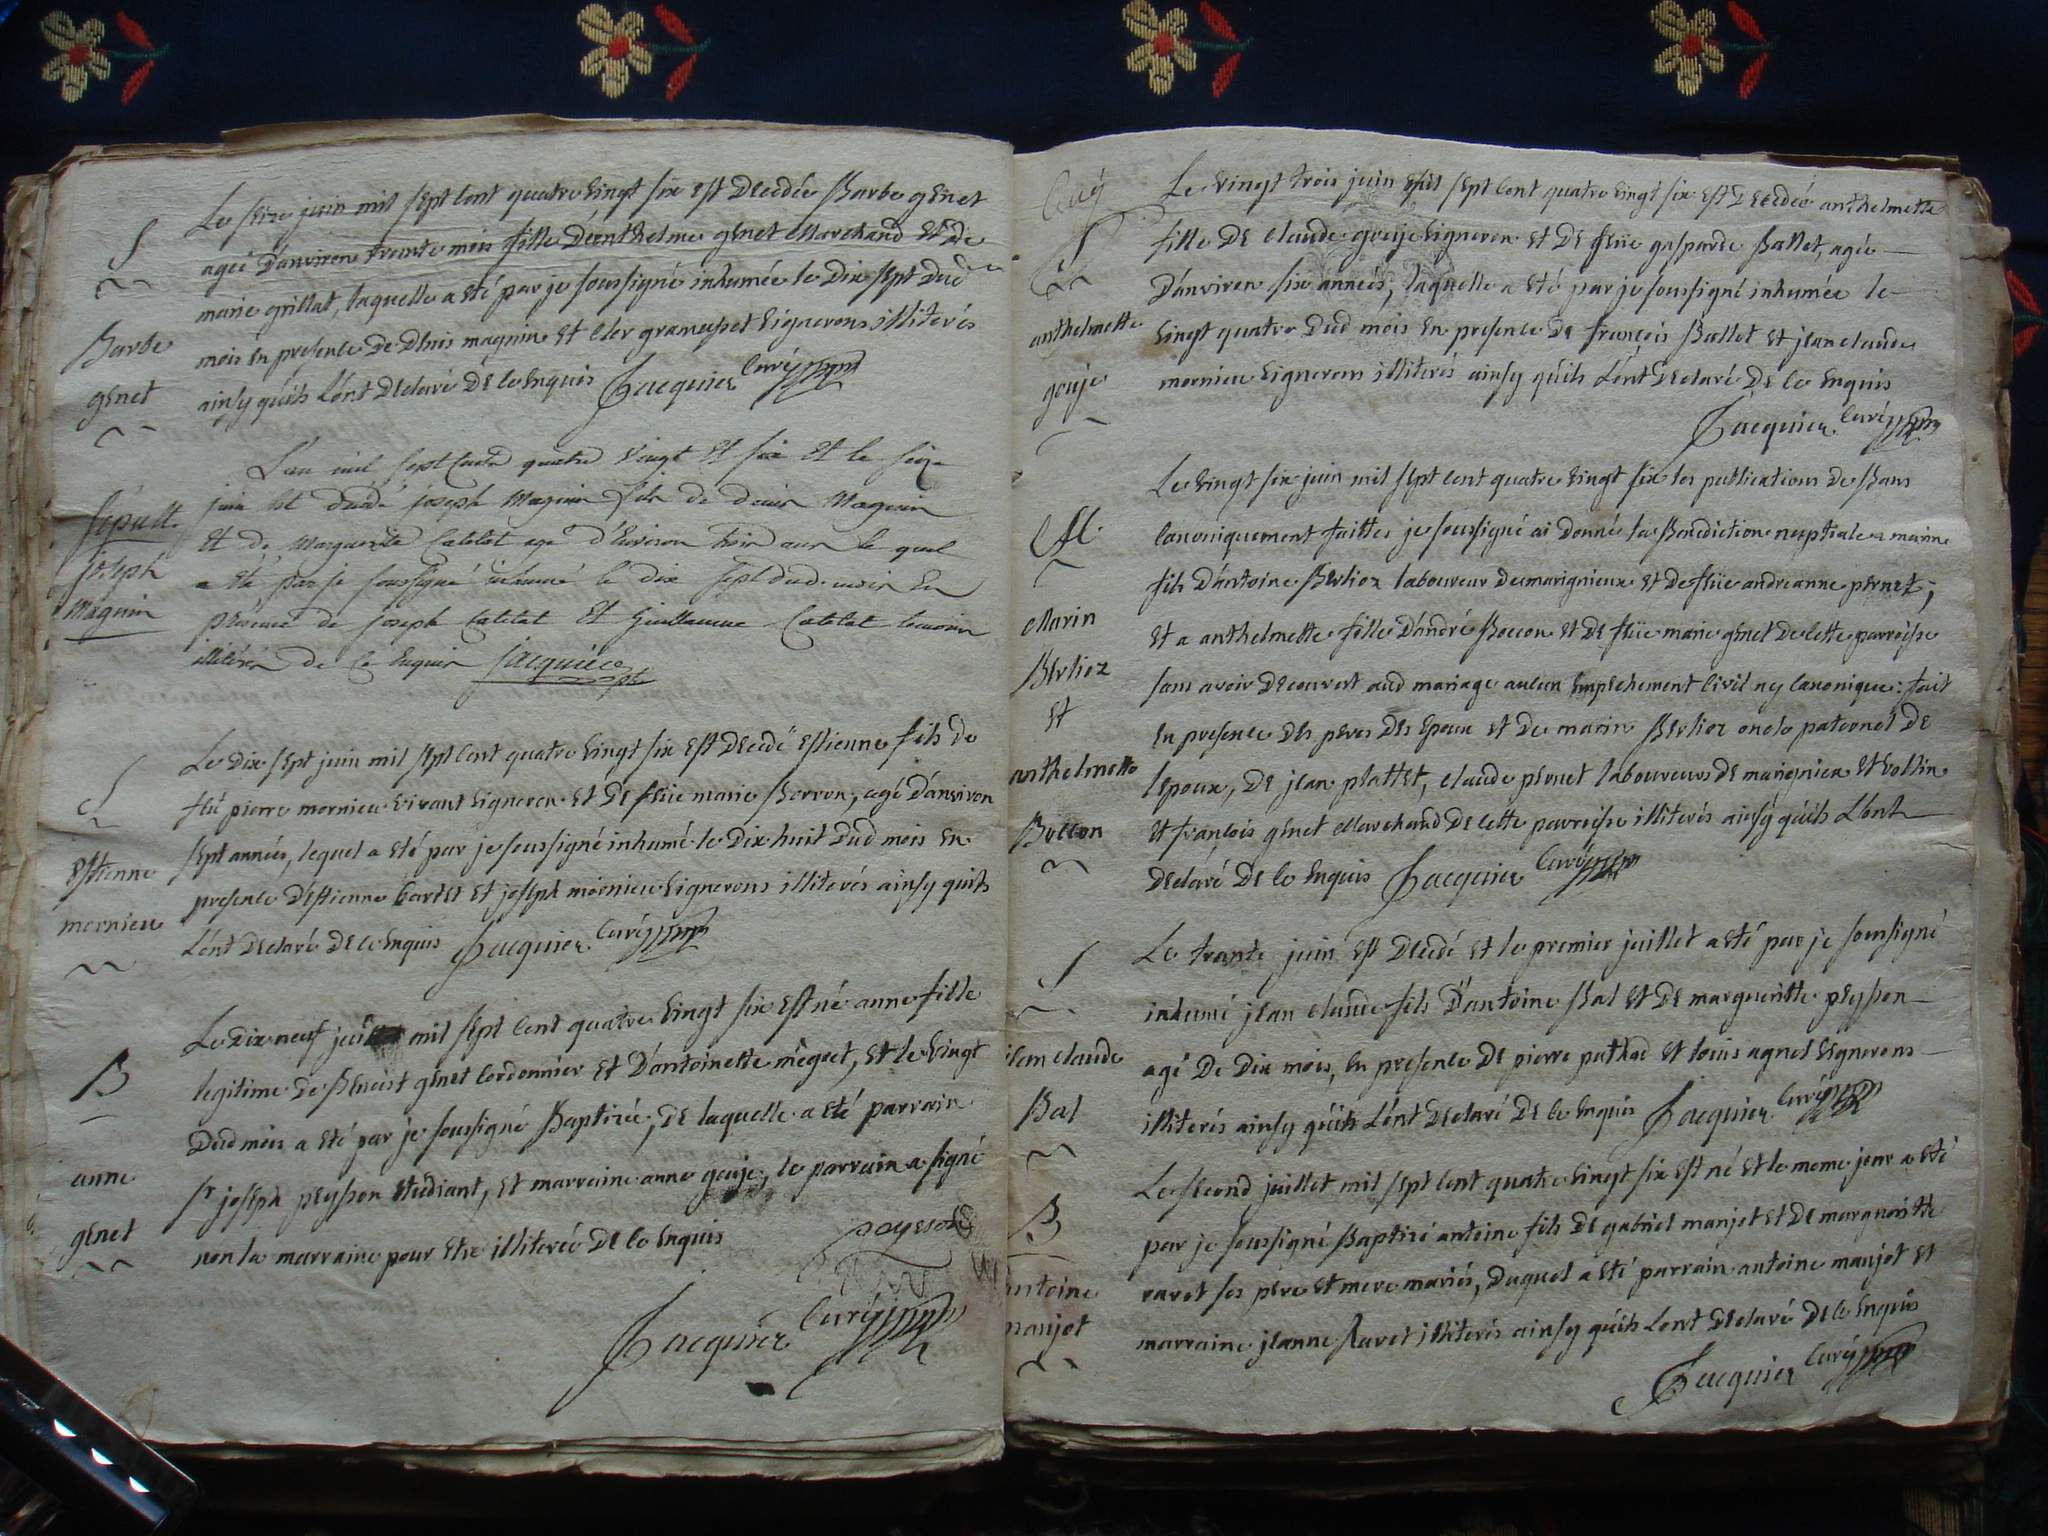 S
Barbe
genet
Le seize juin mil sept cent quatre vingt six est decedée Barbe genet
ageé d'anviron trente mois fille d'anthelme genet Marchand et de
marie grillat, laquelle a eté par je soussigné inhumée le dix sept dud
mois en presence de denis magnin et cler gramusset vignerons illiterés
ainsy qu'ils l'ont declaré de ce enquis Jacquier curé
Sepult
joseph
Magnin
L'an mil sept cent quatre vingt et six et le seize
juin est decédé joseph Magnin fils de denis Magnin
et de Marguerite Catelat agé d'environ trois ans le quel
a eté par je soussigné inhumé le dix sept dud. mois en
présence de joseph Catelat et Guillaume Catelat temoins
illitérés de ce enquis Jacquier
S
estienne
mornieu
Le dix sept juin mil sept cent quatre vingt six est decedé estienne fils de
feü pierre mornieu vivant vigneron et de feüe marie Borron, agé d'anviron
sept années, lequel a eté par je soussigné inhumé le dix huit dud mois en
presence d'estienne Cartet et joseph mornieu vignerons illiterés ainsy quils
l'ont declaré de ce enquis Jacquier curé
B
anne
genet
Le dix neuf juin mil sept cent quatre vingt six est né anne fille
legitime de Benoist genet cordonnier et d'antoinette megret, et le vingt
dud mois a eté par je soussigné Baptizée, de laquelle a eté parrain
sr joseph peysson etudiant, et marraine anne gouje, le parrain a signé
non la marraine pour etre illiterée de ce enquis
payeson
Jacquier curé
S
anthelmette
gouje
Le vingt trois juin mil sept cent quatre vingt six est decedée anthelmette
fille de claude gouje vigneron et de feüe gasparde Ballet, agée
d'anviron six années, laquelle a eté par je soussigné inhumée le
vingt quatre dud mois en presence de françois Ballet et jean claude
mornieu vignerons illiterés ainsy qu'ils l'ont declaré de ce enquis
Jacquier curé
M
Marin
Berlioz
et
anthelmette
Boccon
Le vingt six juin mil sept cent quatre vingt six les publications de Bans
canoniquement faittes je soussigné ai donné la Benediction nuptiale a marin
fils d'antoine Berlioz laboureur de marignieux et de feüe andreanne pernet;
et a anthelmette fille d'andré Boccon et de feüe marie genet de cette parroisse
sans avoir decouvert aud mariage aucun empechement civil ny canonique: fait
en presence des peres des epoux et de marin Berlioz oncle paternel de
lepoux, de jean plattet, claude pernet laboureurs de marignieu et vollin
et françois genet Marchand de cette parroisse illiterés ainsy qu'ils l'ont
declaré de ce enquis Jacquier curé
S
jean claude
Bal
Le trante juin est decedé et le premier juillet a eté par je soussigné
inhumé jean claude fils d'antoine Bal et de margueritte peysson
agé de dix mois, en presence de pierre puthod et louis agnel vignerons
illiterés ainsy qu'ils l'ont declaré de ce enquis Jacquier curé
B
antoine
manjot
Le second juillet mil sept cent quatre vingt six est né et le meme jour a eté
par je soussigné Baptizé antoine fils de gabriel manjot et de margueritte
ravet ses pere et mere mariés, duquel a eté parrain antoine manjot et
marraine jeanne Ravet illiterés ainsy qu'ils l'ont declaré de ce enquis
Jacquier curé